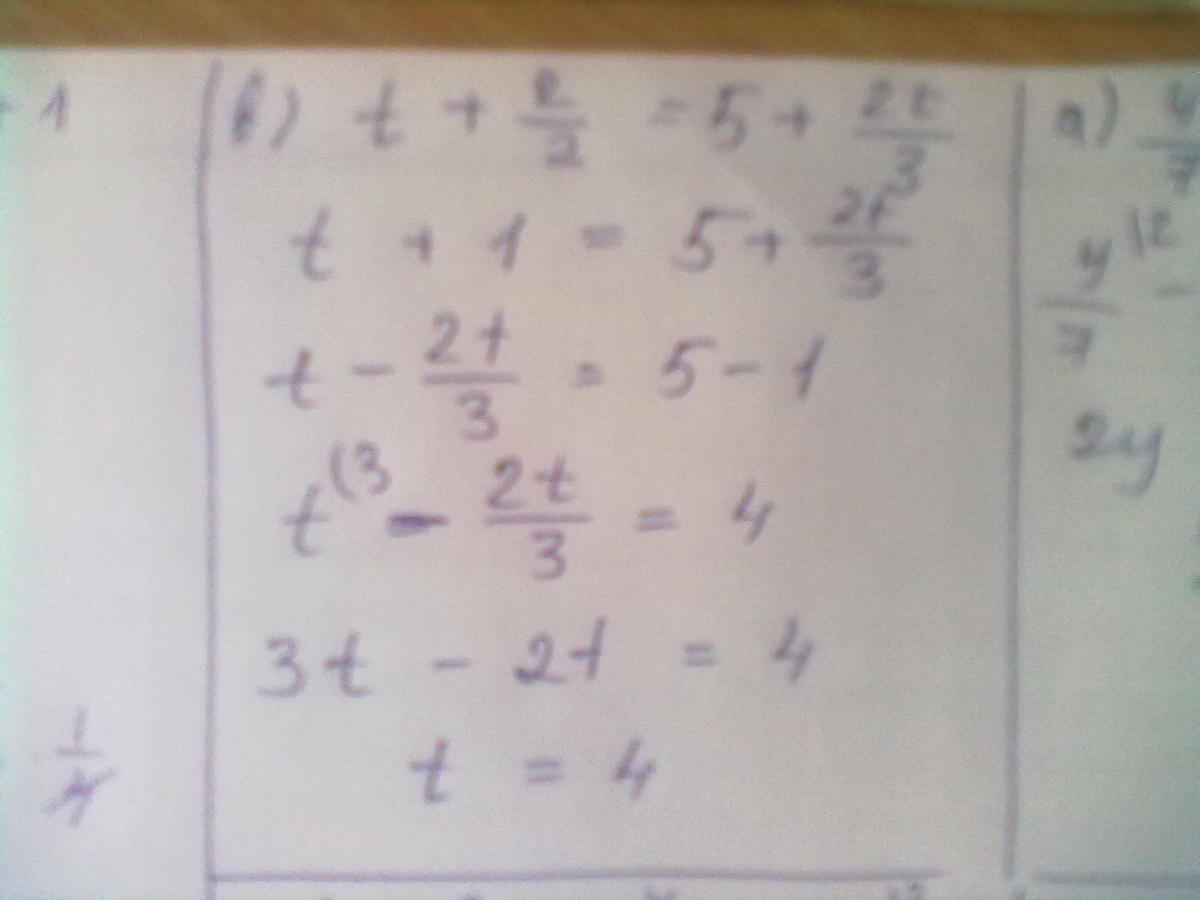 + 1
в) t + 2/2 = 5 + 2t/3
t + 1 = 5 + 2t/3
t - 2t/3 = 5 - 1
t (3 - 2t/3 = 4
3t - 2t = 4
t = 4
1/4
а) y/7
y/7 (2 -
2y